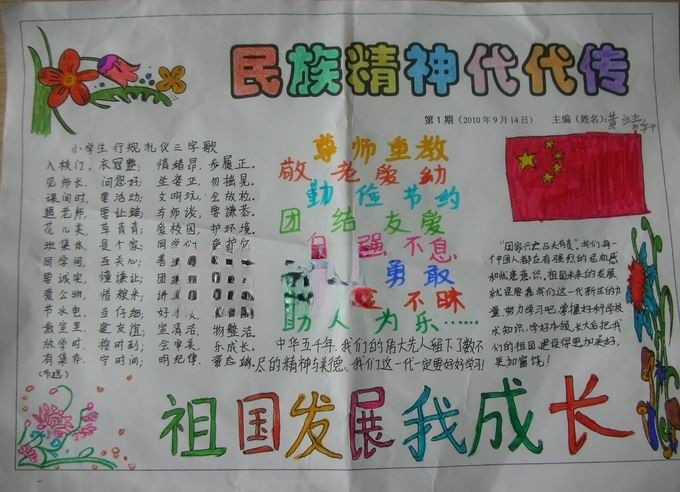 民族精神代代传
第1期（2010年9月14日） 主编（姓名）：黄
小学生行规礼仪三字歌
入校门，衣冠整， 情绪昂，步履正。
见师长，问您好； 坐姿正，勿摇晃。
课间时，要活动； 文明玩，全放松。
遇老师，要让路； 与师谈，要谦恭。
花儿美，草青青； 爱校园，护环境。
班集体，是个家； 同学们
同学间，互关心；
要诚实，谦让；
爱公物，惜粮米；
节水电，
教室里，建友谊； 室清洁，物整洁。
放学时，按时到； 会审美，乐成长。
有集会，守时间； 明纪律，
（节选）
尊师重教
敬老爱幼
勤俭节约
团结友爱
自强不息
勇敢
不昧
助人为乐……
中华五千年，我们的伟大先人留下了数不
尽的精神与美德，我们这一代一定要好好学习！
"国家兴亡，匹夫有责"，我们每一
个中国人都应有强烈的危机感
和忧患意识，祖国未来的发展
就是要靠我们这一代新生的力
量，努力学习吧，掌握好科学技
术知识，学好本领，长大后把我
们的祖国建设得更加美好，
更加富饶！
祖国发展我成长